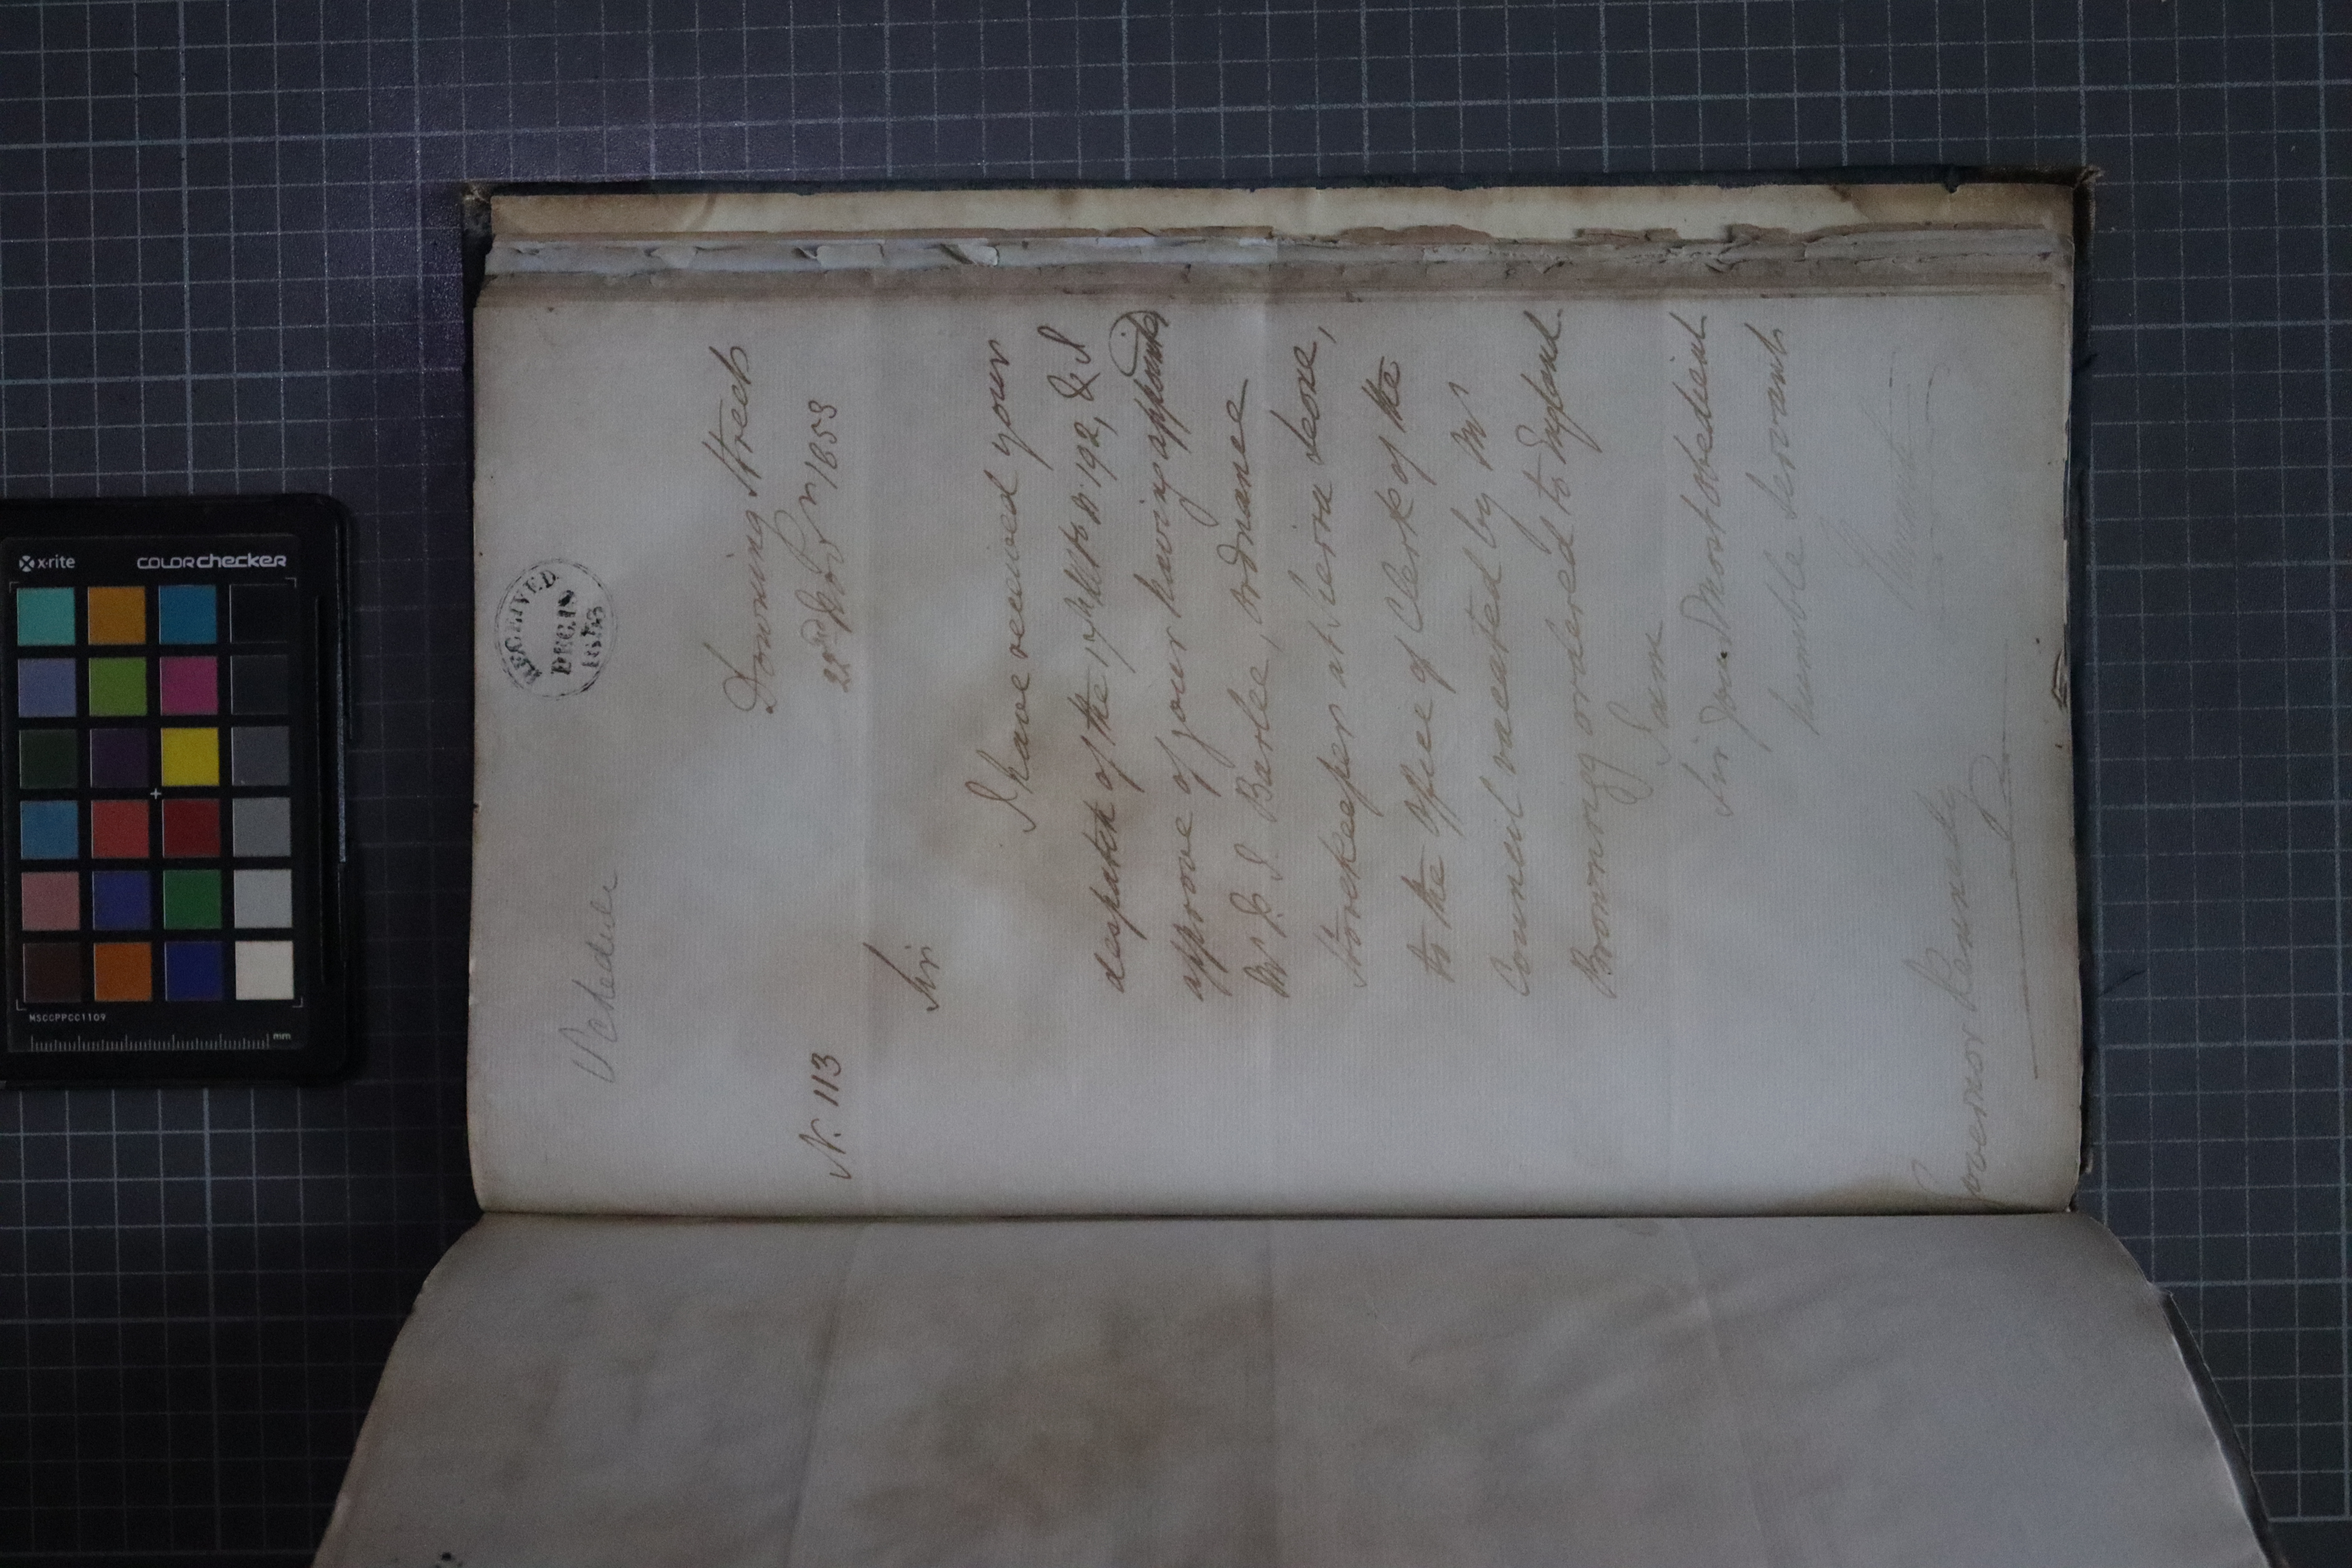 RECEIVED
DEC. 19
1853
Schedule
Downing Street
N. 113
22nd Novr 1853
Sir
I have received your
despatch of the 17th Ulto No 192, & I
approve of your having appointed
Mr J. Barlee, Ordnance
Storekeeper at Sierra Leone,
to the office of Clerk of the
Council vacated by Mr
Browning ordered to England.
I am
Sir Your Most obedient
humble Servant
Newcastle
Governor Kennedy
x-rite
colorchecker
MSCCPPCC1109
mm